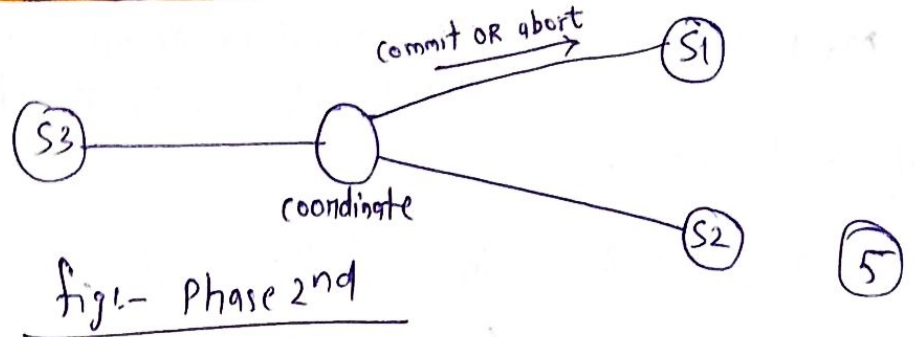 commit OR abort
S1
S3
coordinate
S2
5
fig:- Phase 2nd